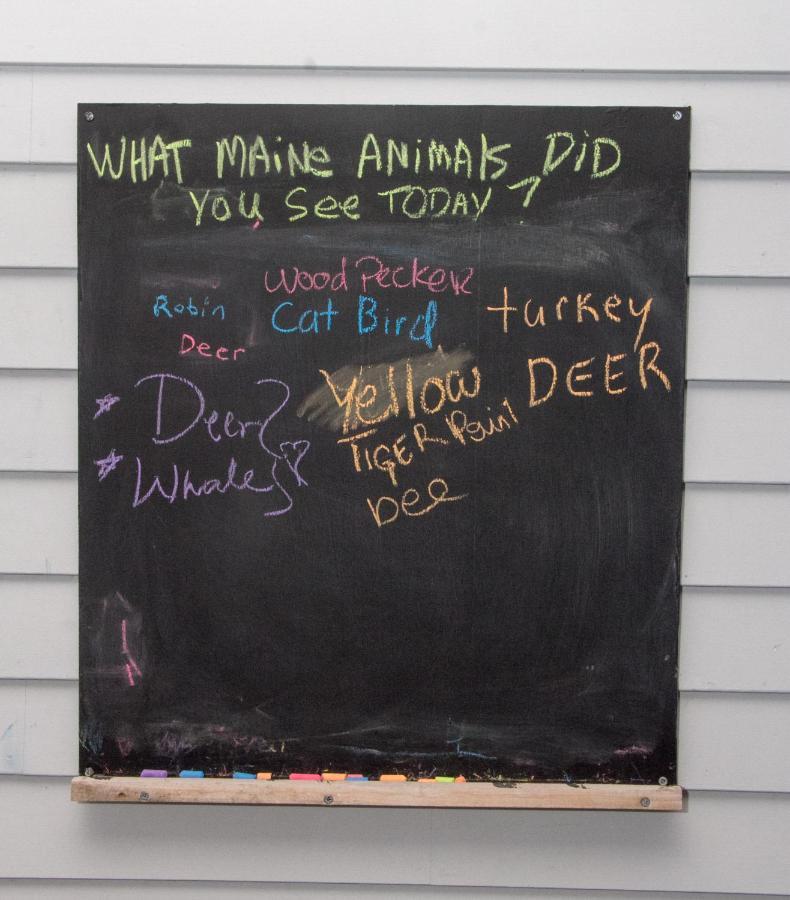 WHAT MAiNe ANiMAlS DiD
YOU See TODAY?
Wood Pecker
Robin
Cat Bird
turkey
Deer
DEER
Deer
Whale
Yellow
TIGER
Dee